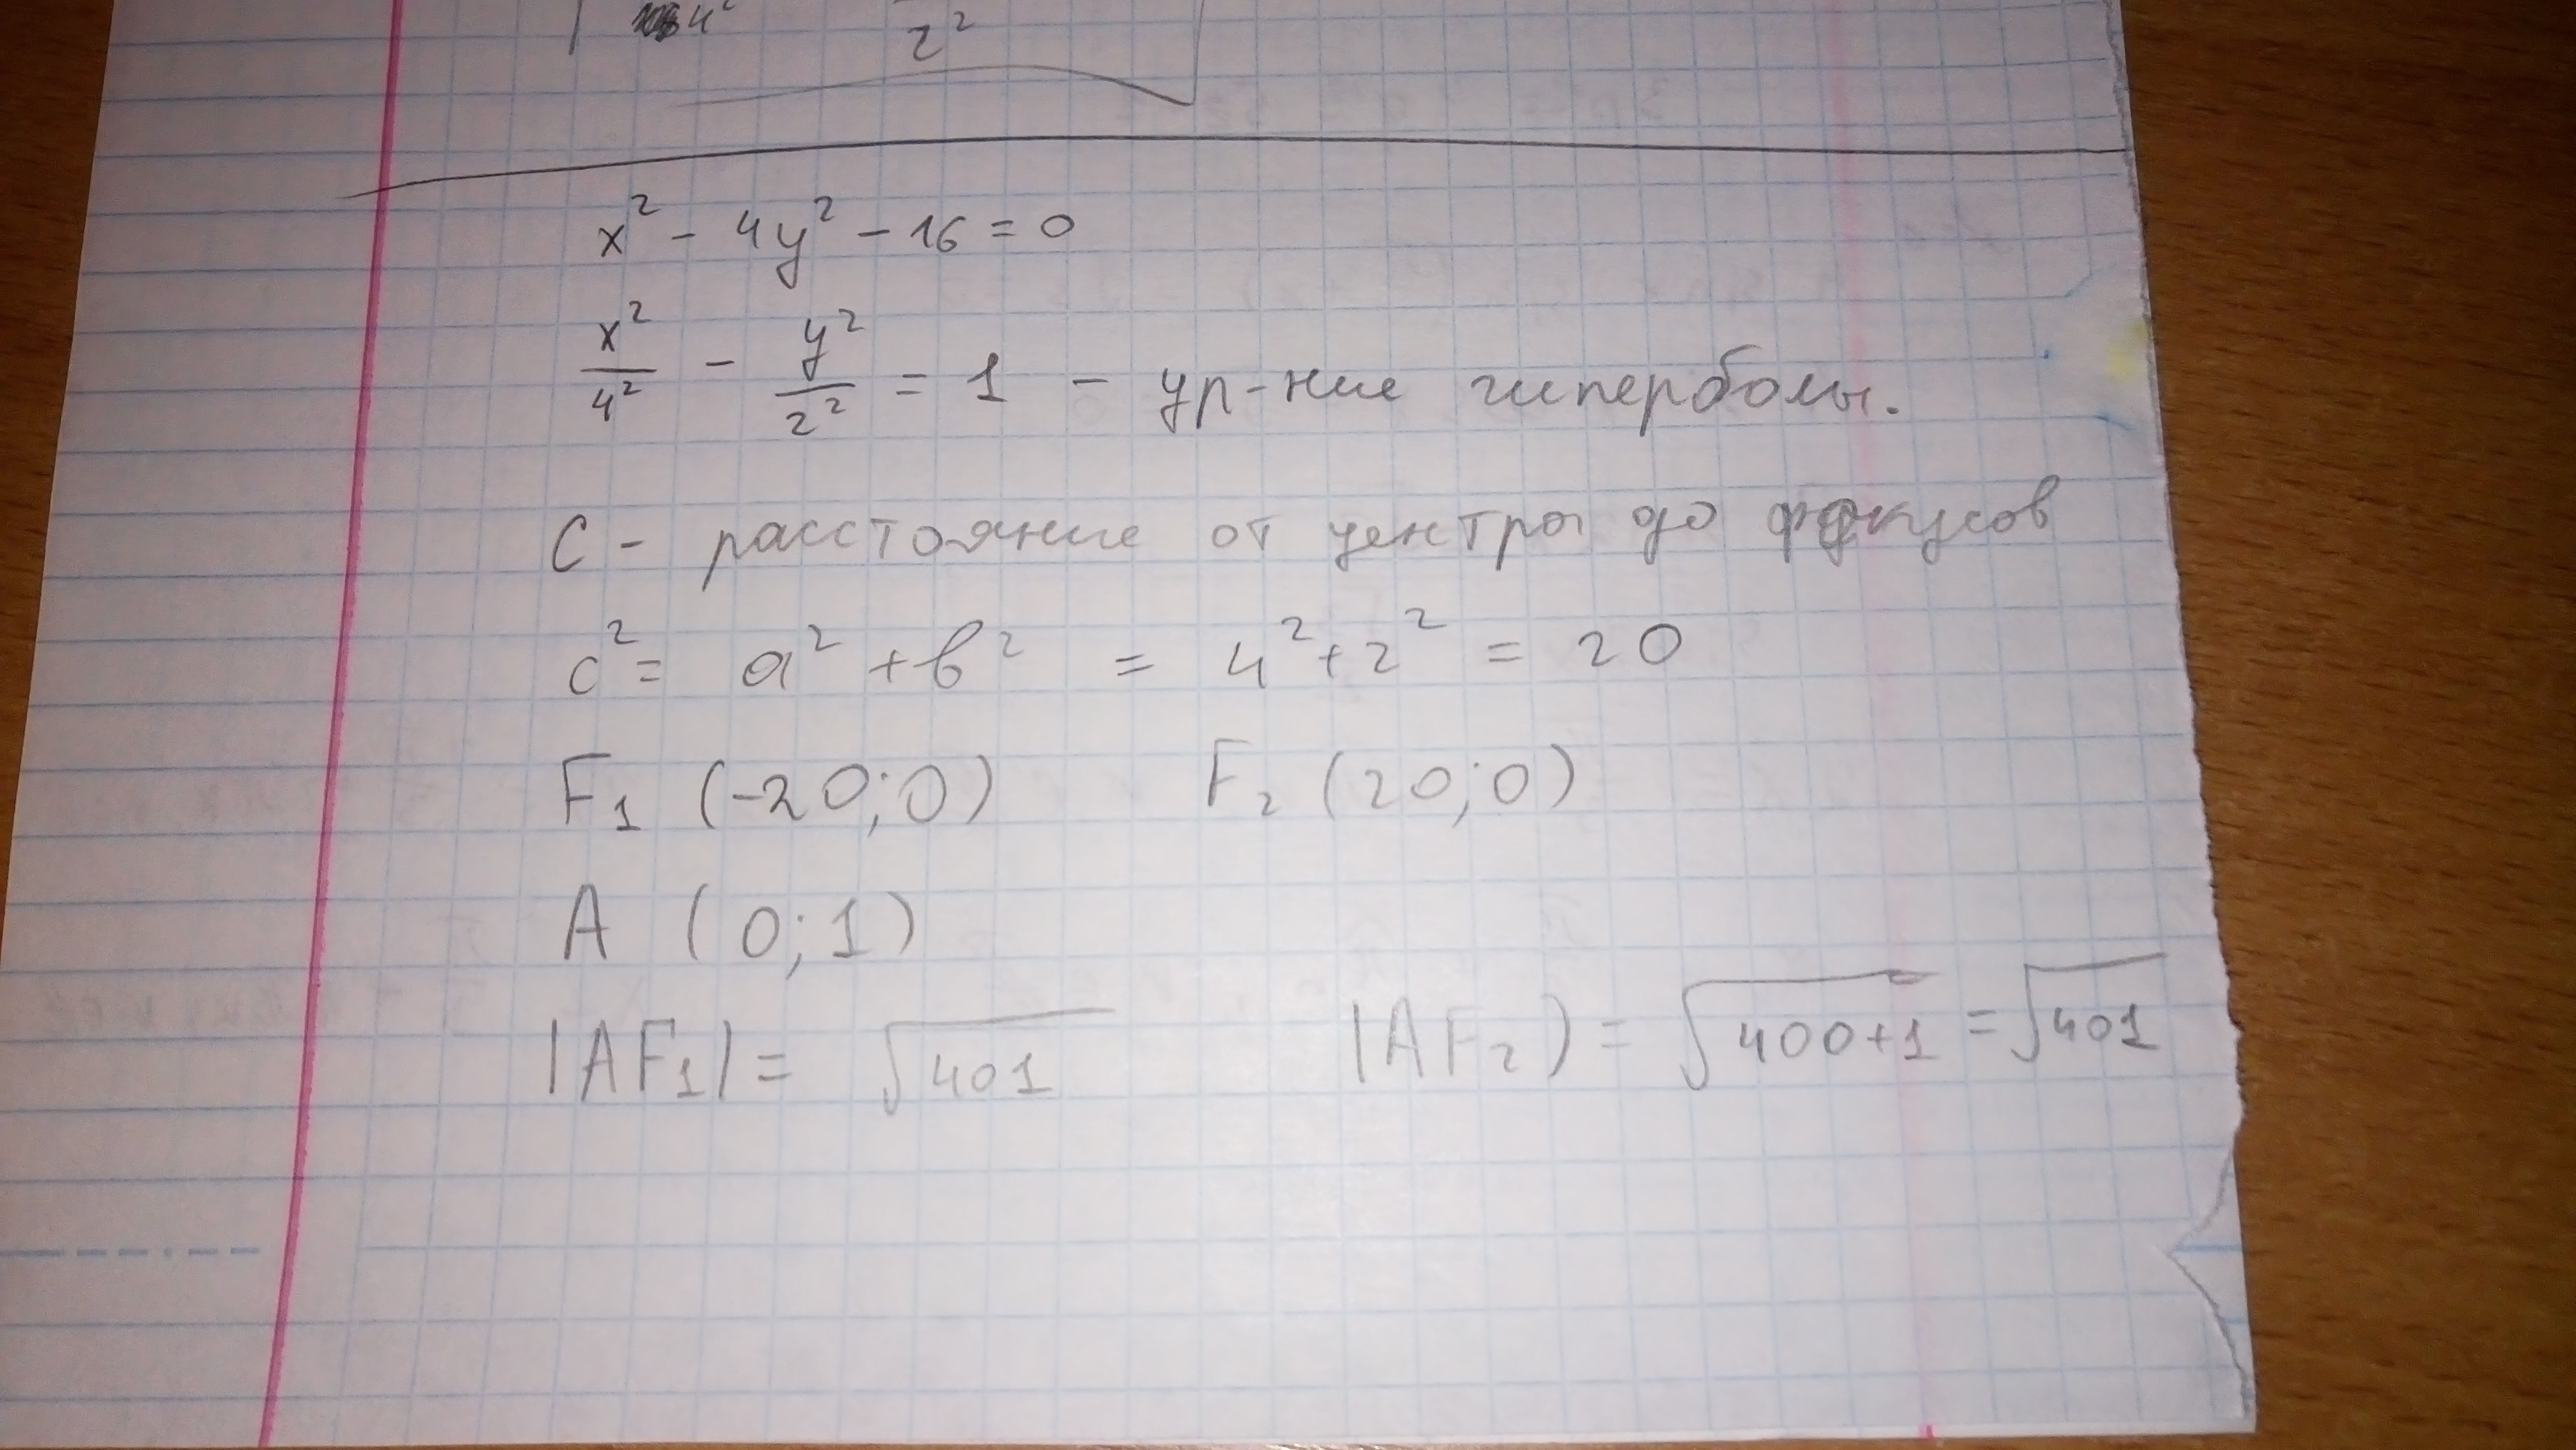 4² 2²
x² - 4y² - 16 = 0
x²/4² - y²/2² = 1 - ур-ние гиперболы.
C - расстояние от центра до фокусов
c² = a² + b² = 4² + 2² = 20
F₁ (-20; 0) F₂ (20; 0)
A (0; 1)
|AF₁| = √401 |AF₂) = √400+1 = √401